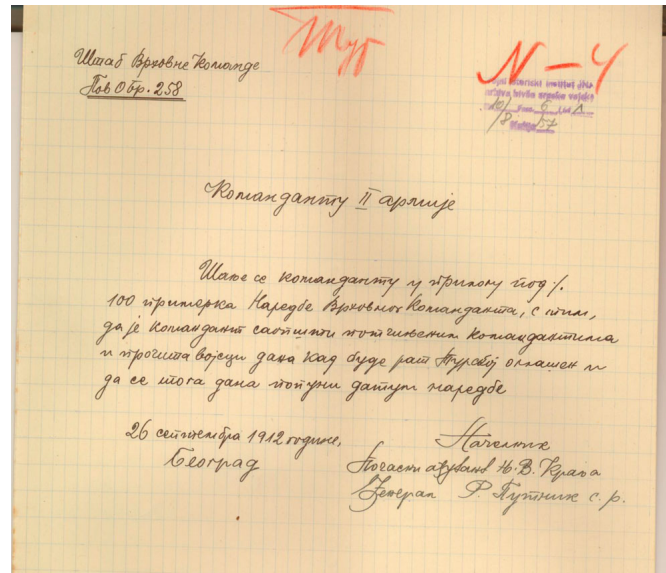 Штаб Врховне Команде
Пов О бр. 258
N-4
Vojni istoriski institut JNA
arhiva bivše srpske vojske
6
Команданту II армије
Шаље се команданту у прилогу под %.
100 примерка Наредбе Врховног Команданта, с тим,
да је командант саопшти потчињеним командантима
и прочита војсци дана кад буде рат Турској оглашен и
да се тога дана попуни датум наредбе
26 септембра 1912 године,
Београд
Начелник
Почасни ађутант Њ. В. Краља
Ђенерал Р. Путник с. р.